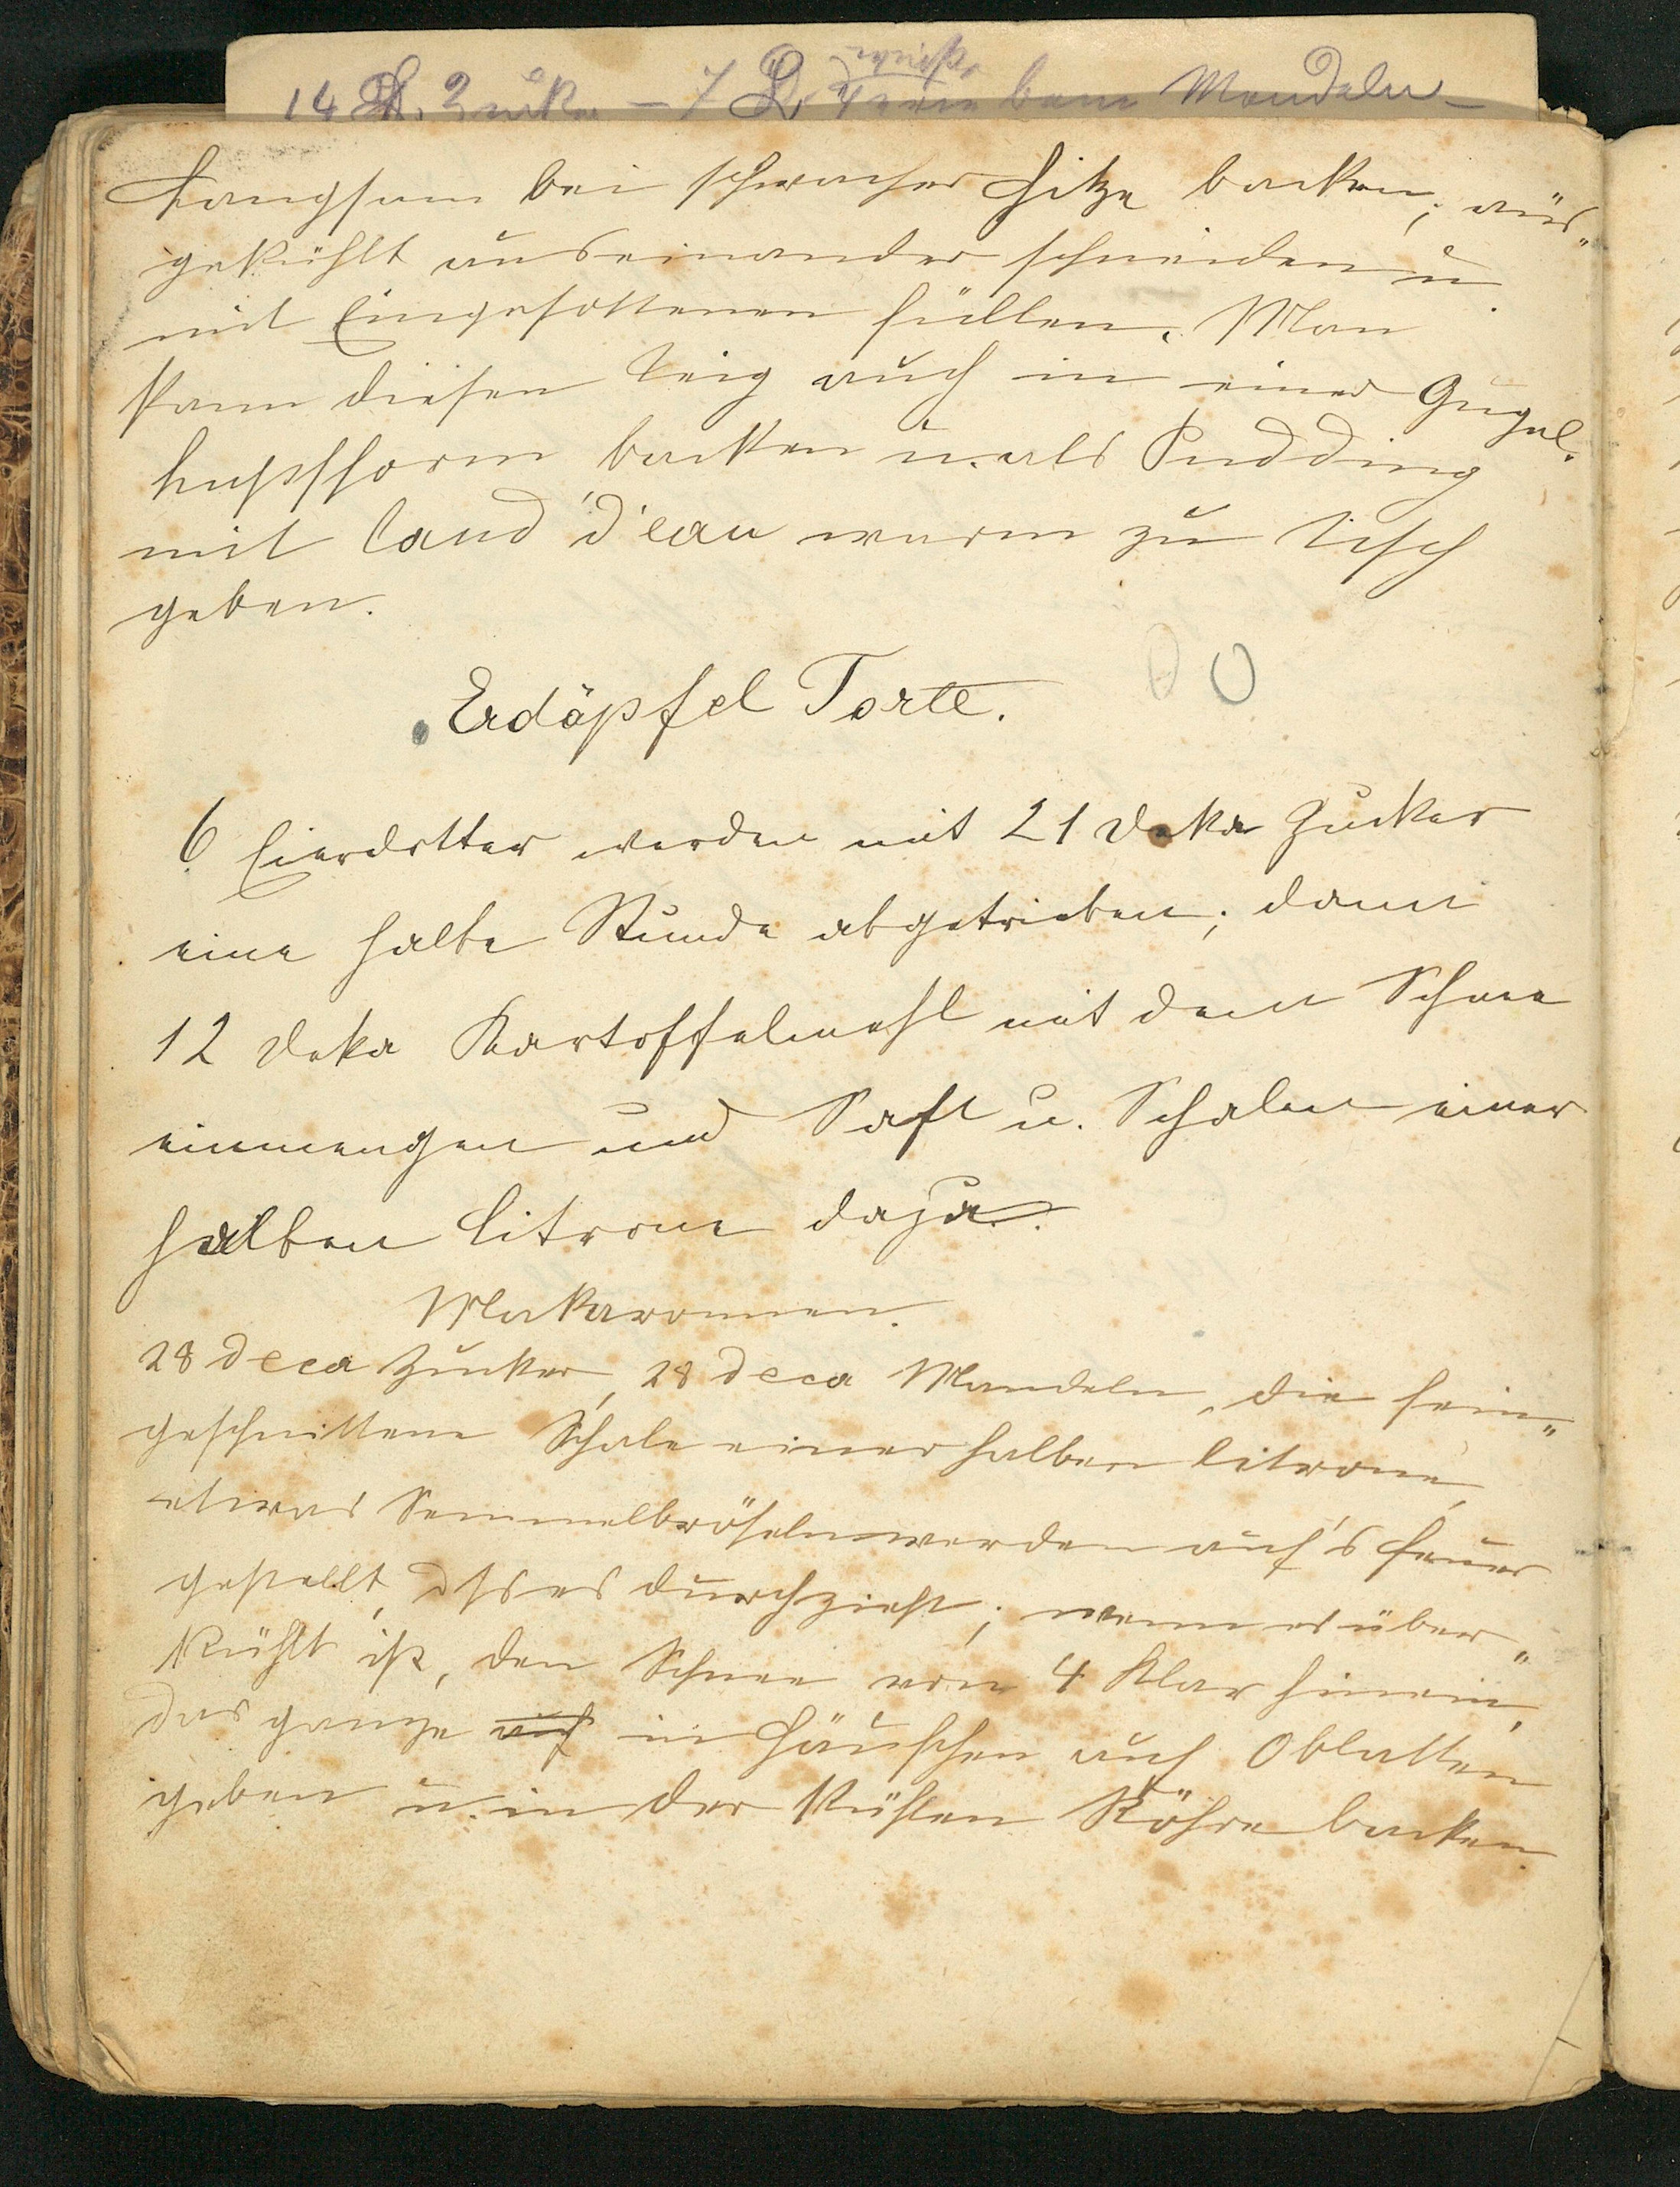 14 D. Zucker – 7 D. Mandeln –
Langsam bei schwacher Hitze backen; aus„
gekühlt auseinander schneiden u
mit Eingesottenen füllen. Man
kann diesen Teig auch in einer Gugel-
hupfform backen u. als Pudding
mit Caud d'eau warm zu Tisch
geben.
Erdäpfel Torte.
6 Eierdotter werden mit 21 Deka Zucker
eine halbe Stunde abgetrieben; dann
12 Deka Kartoffelmehl mit dem Schnee
einmengen und Saft u. Schalen einer
halben Citrone dazu.
Makaronnen.
28 deca Zucker, 28 deca Mandeln, die fein„
geschnittene Schale einer halben Citrone,
etwas Semmelbröseln werden auf's Feuer
gestellt, dss es durchzieht; wenn es über„
kühlt ist, den Schnee von 4 Klar hinein,
das ganze auf in Häufchen auf Oblatten
geben u. in der kühlen Röhre backen